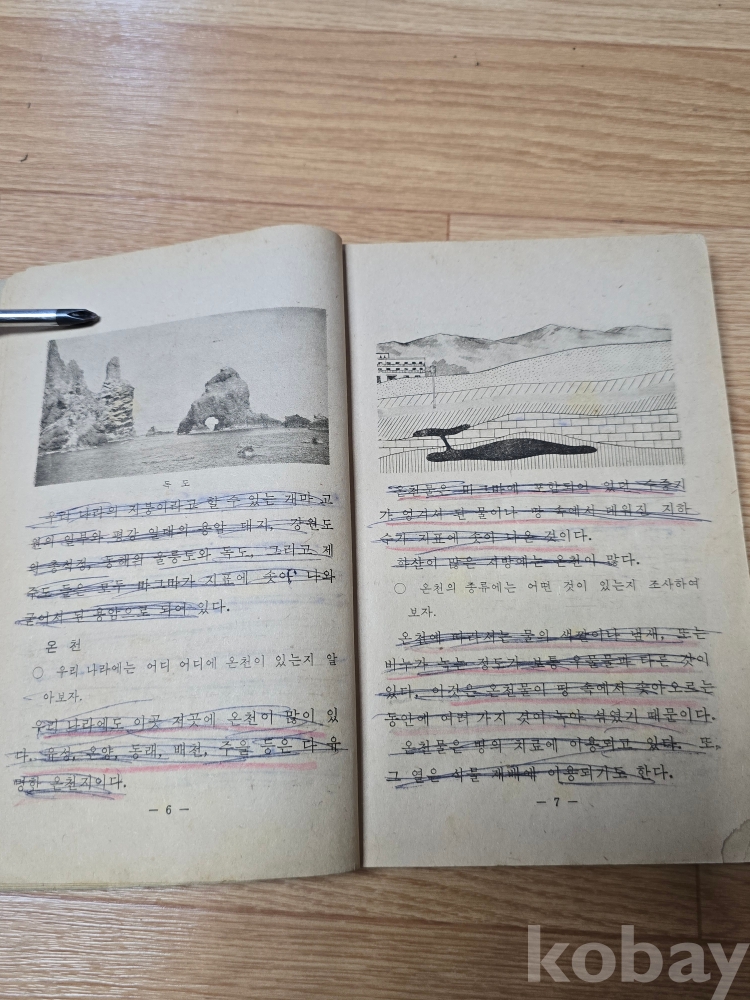 독 도
우리 나라의 지붕이라고 할 수 있는 개마 고
원의 일부와 평강 일대의 용암 대지, 강원도
의 총석정, 동해의 울릉도와 독도, 그리고 제
주도 들은 모두 마그마가 지표에 솟아 나와
굳어서 된 용암으로 되어 있다.
온 천
○ 우리 나라에는 어디 어디에 온천이 있는지 알
아보자.
우리 나라에도 이곳 저곳에 온천이 많이 있
다. 유성, 온양, 동래, 배천, 주을 등은 다 유
명한 온천지이다.
— 6 —
온천물은 마그마에 포함되어 있던 수증기
가 엉겨서 된 물이나 땅 속에서 데워진 지하
수가 지표에 솟아 나온 것이다.
화산이 많은 지방에는 온천이 많다.
○ 온천의 종류에는 어떤 것이 있는지 조사하여
보자.
온천에 따라서는 물의 색깔이나 냄새, 또는
비누가 녹는 정도가 보통 우물물과 다른 것이
있다. 이것은 온천물이 땅 속에서 솟아오르는
동안에 여러 가지 것이 녹아 섞였기 때문이다.
온천물은 병의 치료에 이용되고 있다. 또,
그 열은 식물 재배에 이용되기도 한다.
— 7 —
kobay